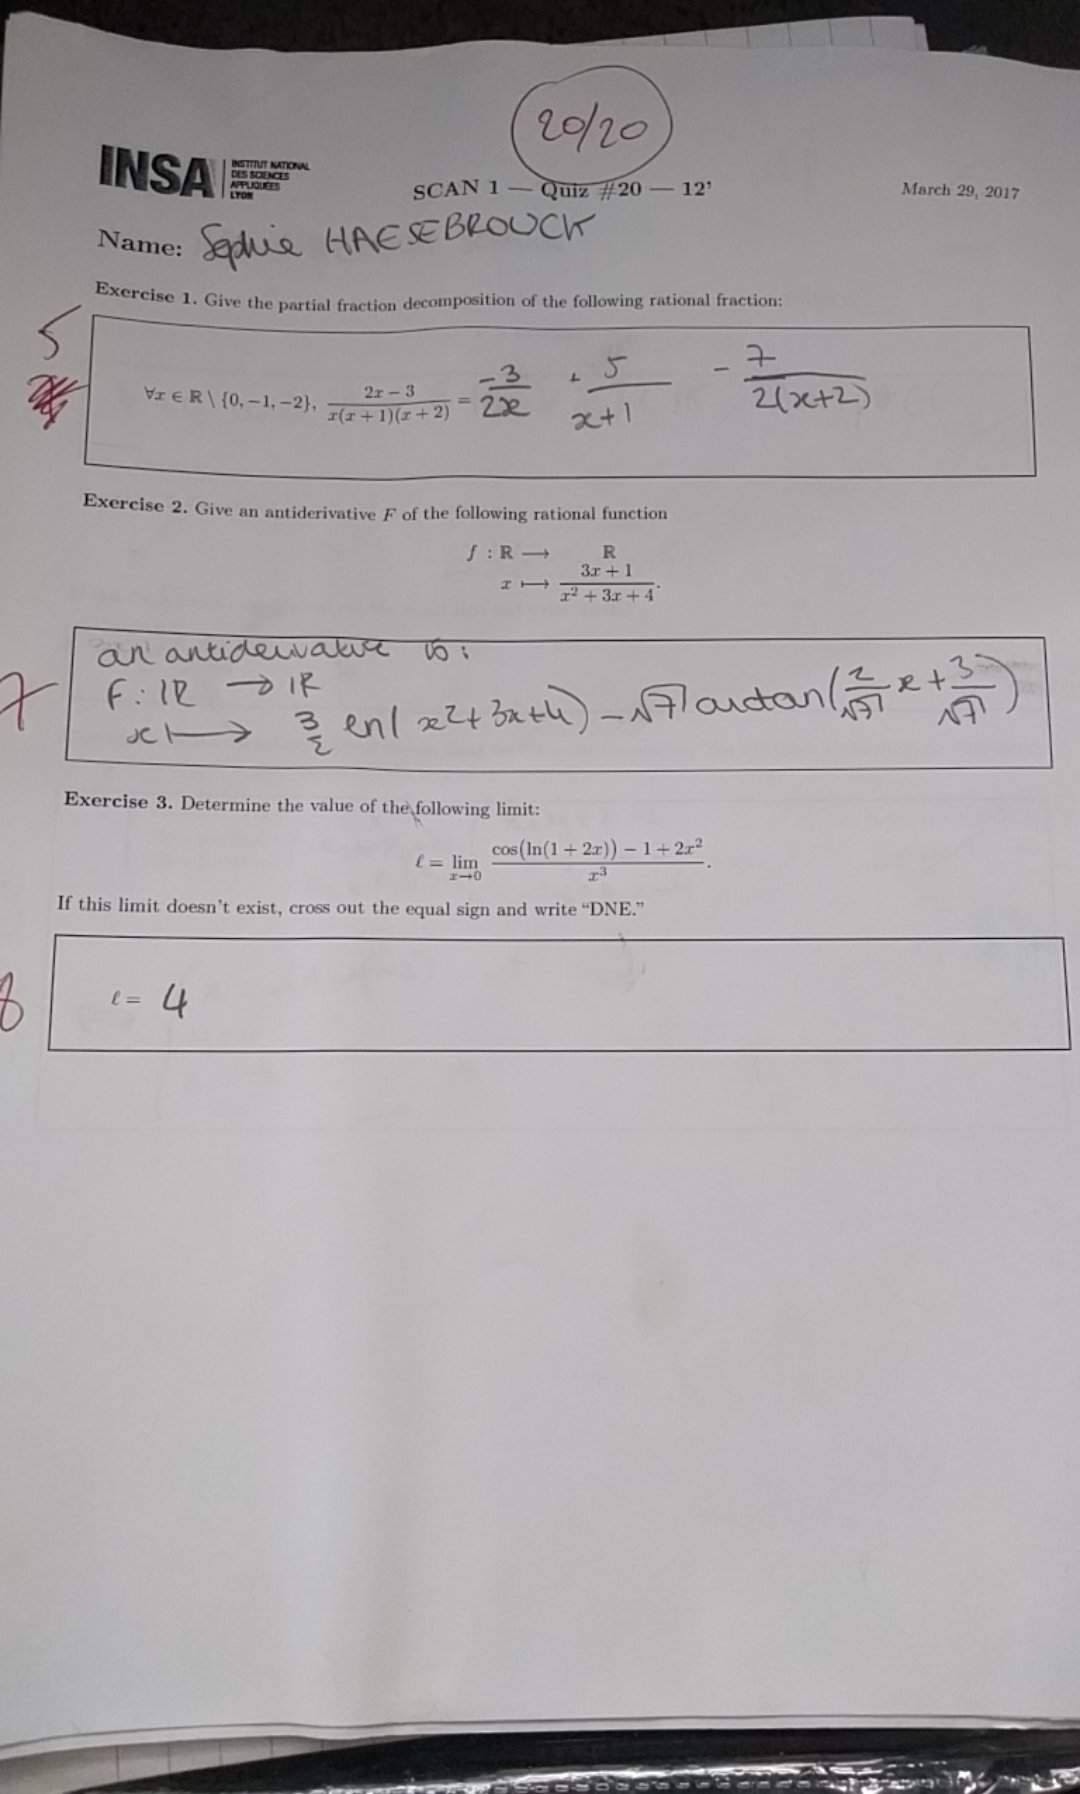 20/20
INSA INSTITUT NATIONAL
DES SCIENCES
APPLIQUÉES
LYON
SCAN 1 — Quiz #20 — 12'
March 29, 2017
Name: Sophie HAESEBROUCK
Exercise 1. Give the partial fraction decomposition of the following rational fraction:
5
∀x ∈ ℝ \ {0, −1, −2}, (2x − 3)/(x(x + 1)(x + 2)) = -3/2x + 5/(x+1) - 7/(2(x+2))
Exercise 2. Give an antiderivative F of the following rational function
f : ℝ ⟶ ℝ
x ⟼ (3x + 1)/(x² + 3x + 4).
7
an antiderivative is:
F: ℝ → ℝ
x ⟼ 3/2 ln(x²+3x+4) - √7 arctan(2/√7 x + 3/√7)
Exercise 3. Determine the value of the following limit:
ℓ = lim x→0 (cos(ln(1 + 2x)) − 1 + 2x²)/x³.
If this limit doesn't exist, cross out the equal sign and write “DNE.”
8
ℓ = 4